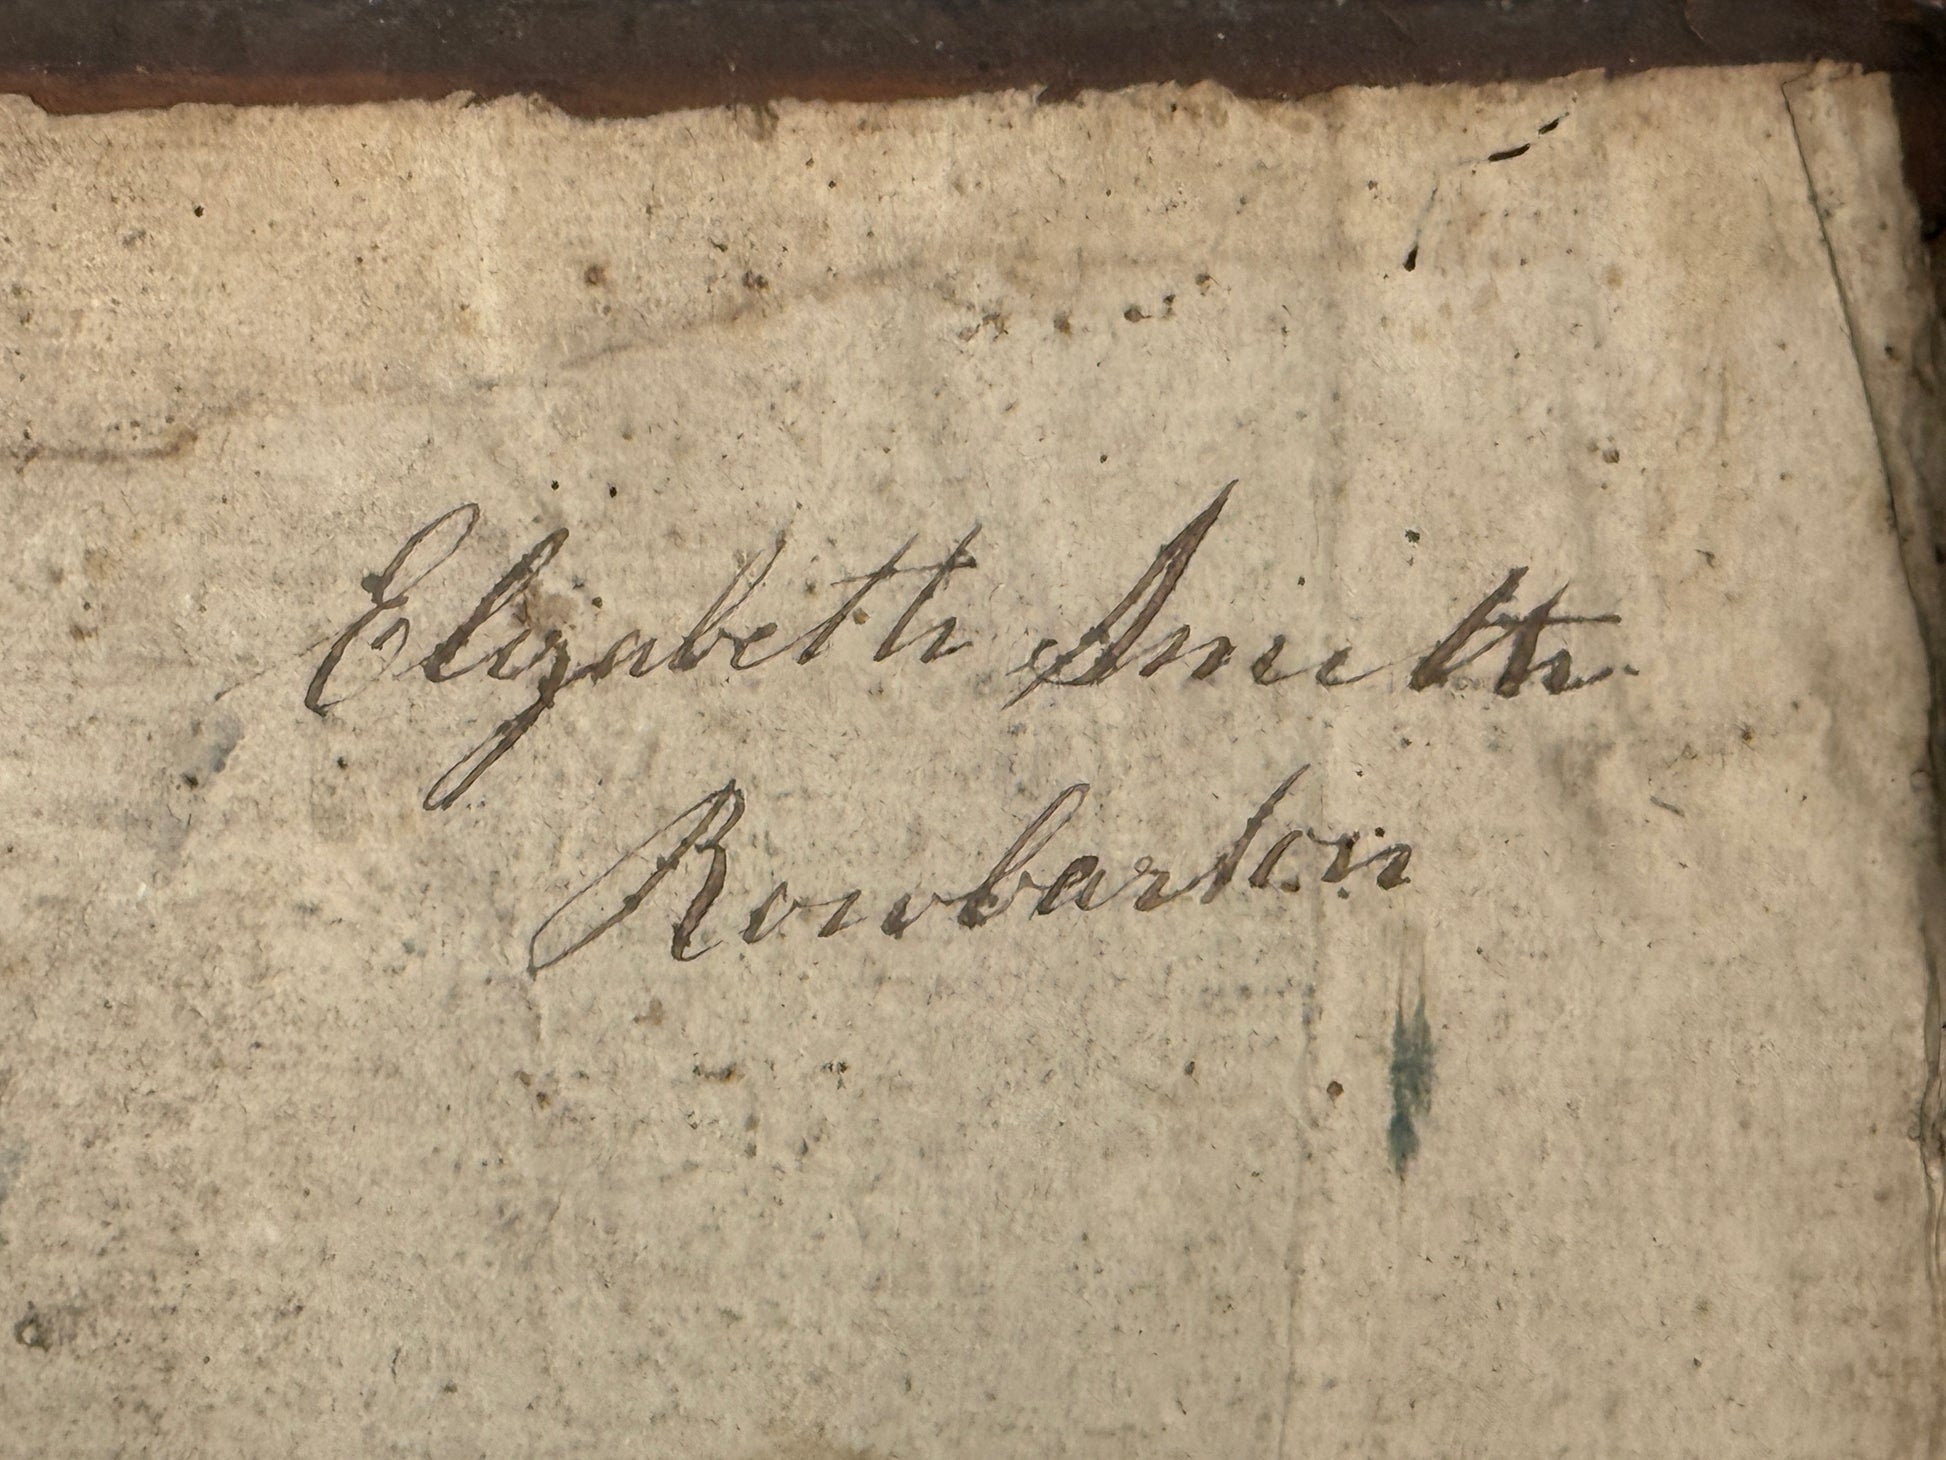 Elizabeth Smith
Rowbarton